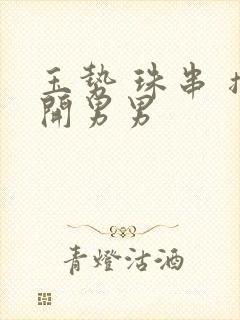 玉势 珠串 扩
開男男
青燈沽酒